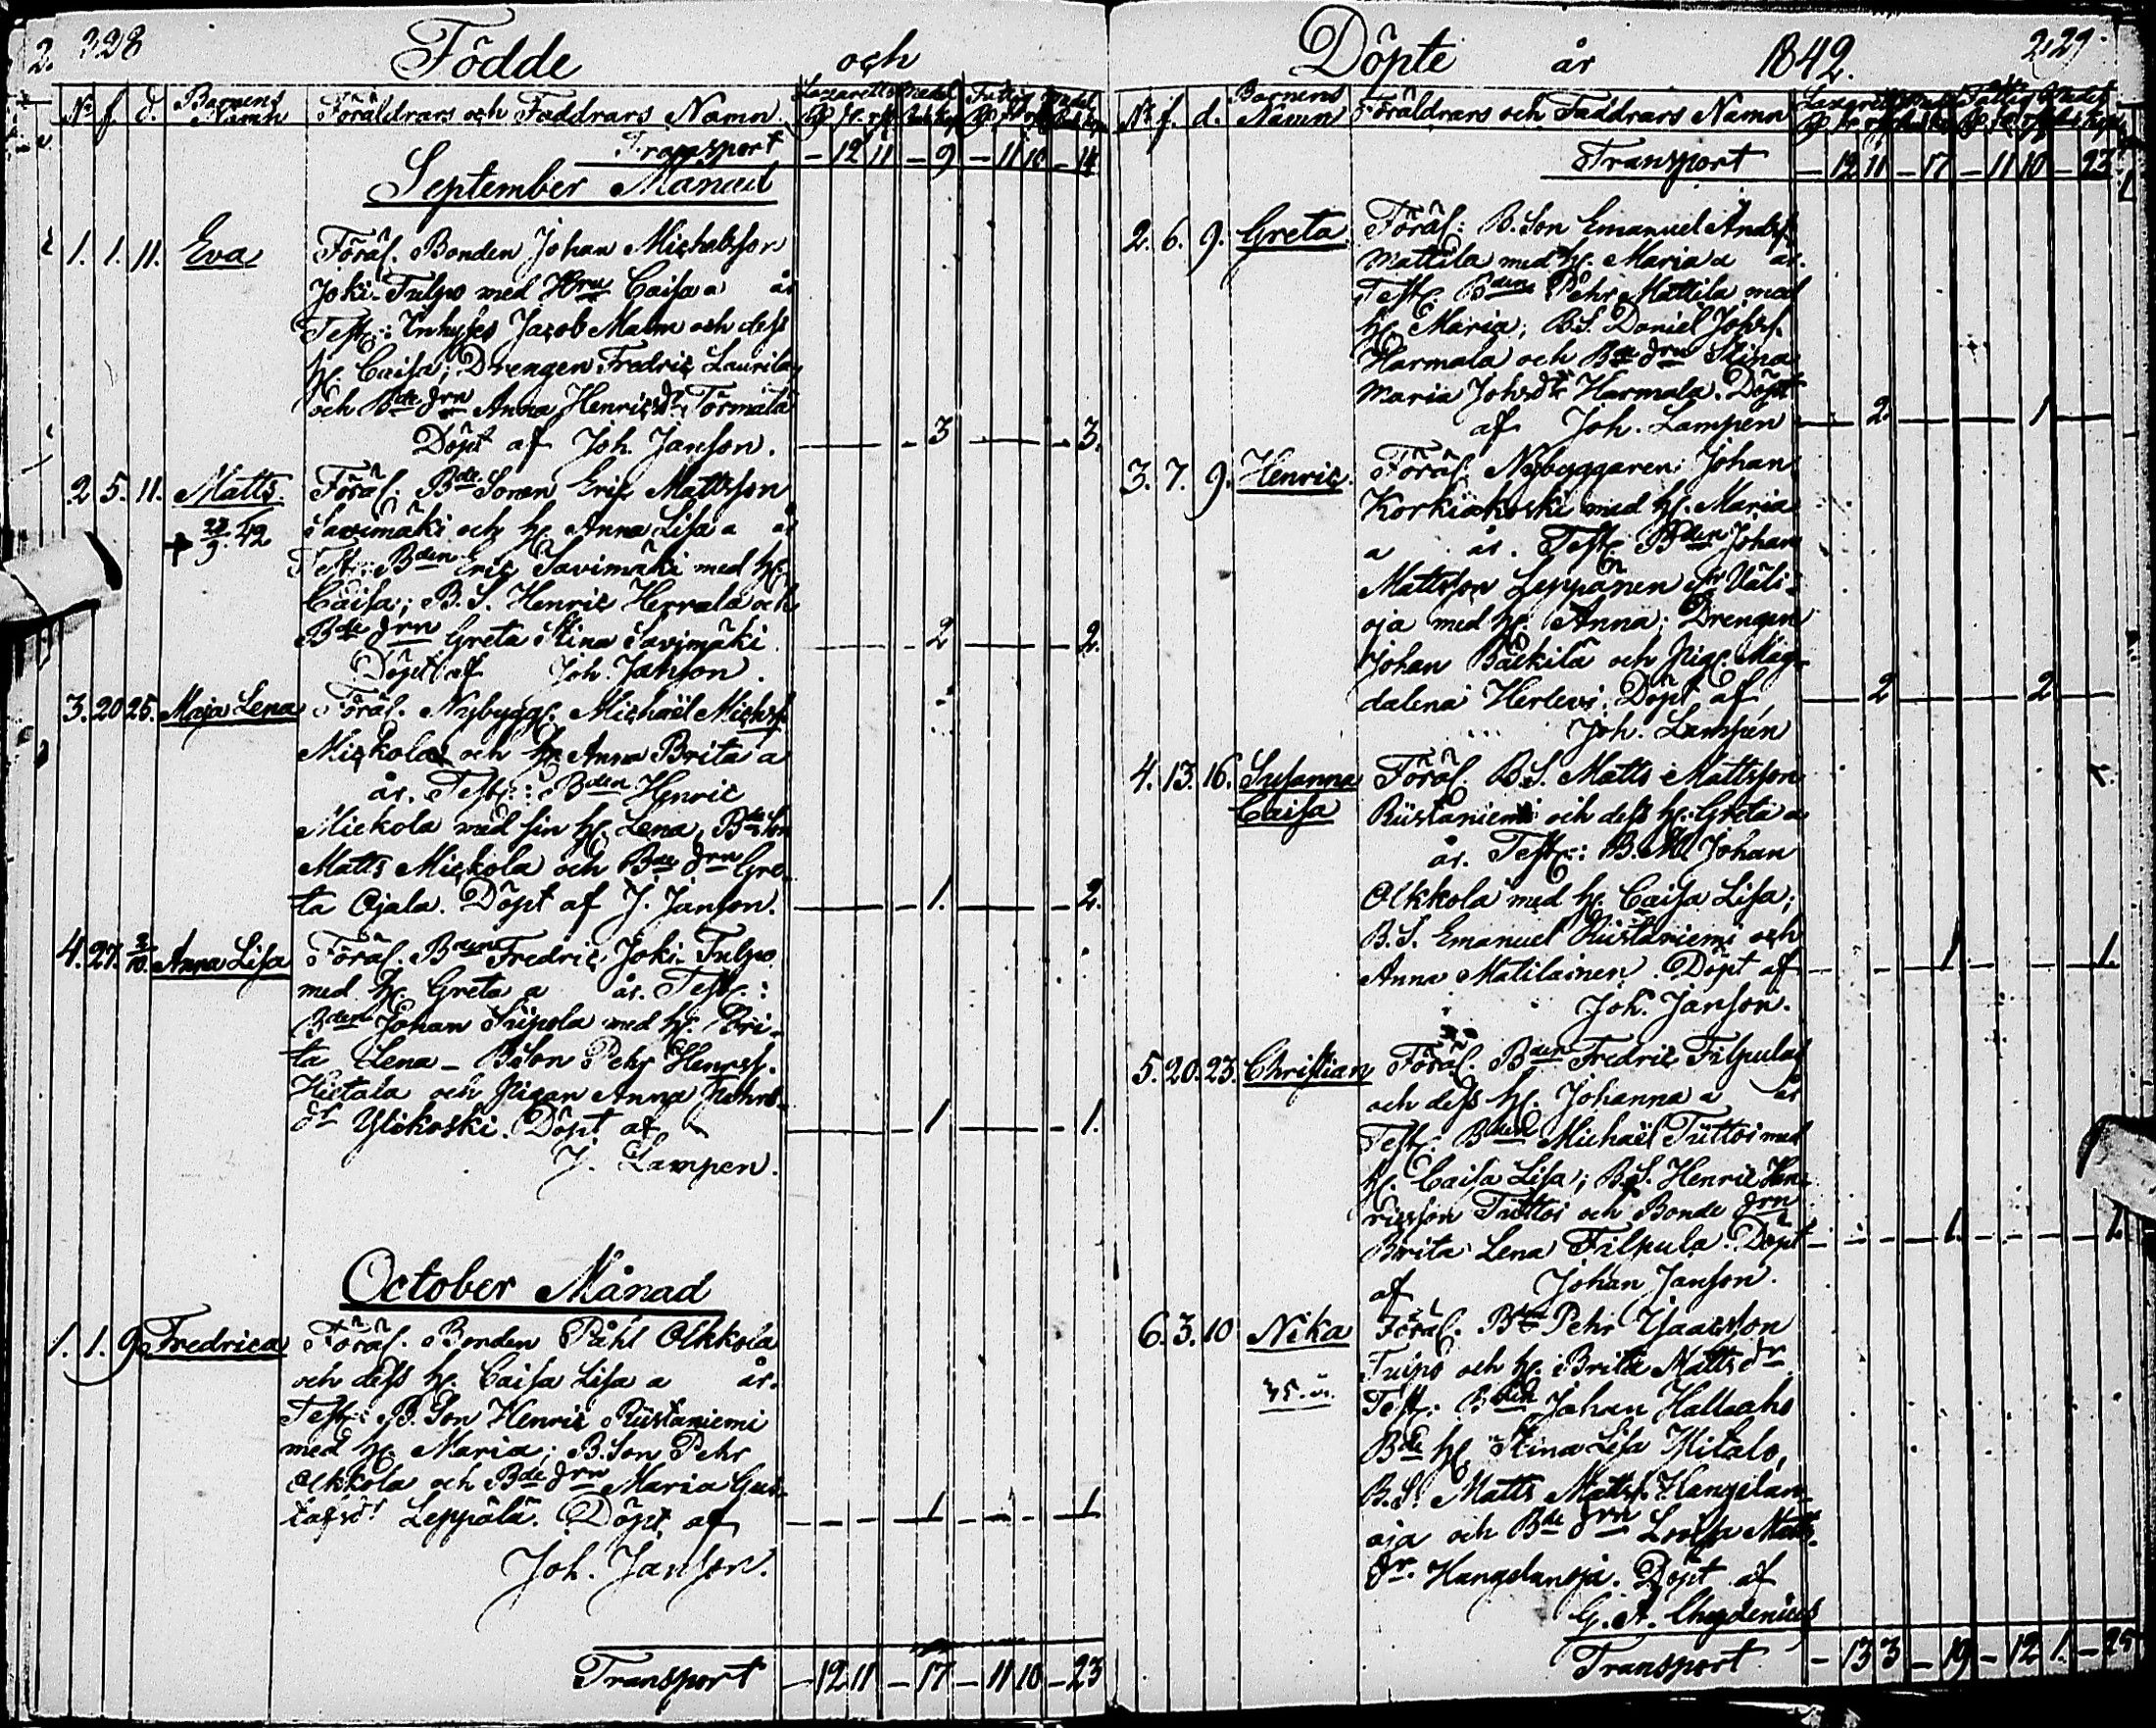 328
Födde och
Nr f. d. Barnens Namn Föräldrars och Faddrars Namn
Transport – 12 11 – 9 – 11 10 – 14
September Månad
1. 1. 11. Eva Föräl. Bonden Johan Michelsson
Joki-Tulpo med Hru Caisa a år
Test: Inhyses Jacob Malm och dess
h. Caisa; Drengen Fredric Laurila
och Bde drn Anna Henricsdr Törmälä
Döpt af Joh. Janson. – 3 – 3.
2 5. 11. Matts. Föräl: Bde Sonen Eric Mattsson
+ 22/9. 42 Savimäki och h. Anna Lisa a år
Test: Bden Eric Savimäki med h.
Caisa; B. S. Henric Herrala och
Bde drn Greta Stina Savimäki. – 2 – 2.
Döpt af Joh. Janson.
3. 20 25. Maja Lena Föräl. Nybygg. Michaël Michss.
Mickola och h. Anna Brita a
år. Test: Bden Henric
Mickola med sin h. Lena, Bde Son
Matts Mickola och Bde drn Gre-
ta Ojala. Döpt af J. Janson. – 1. – 2.
4. 27. 2/10. Anna Lisa Föräl. Bden Fredric Joki-Tulpo
med h. Greta a år. Test:
Bden Johan Sripola med h. Bri-
ta Lena – B. Son Pehr Henrss.
Hietala och Pigan Anna
dr Ylikoski. Döpt af – 1 – 1.
J. Lampen.
October Månad
1. 1. 9. Fredrica Föräl. Bonden Påhl Olkkola
och dess h. Caisa Lisa a år.
Test: B. Son Henric Riistaniemi
med h. Maria; B. Son Pehr
Olkkola och Bde drn Maria Gus-
tafsdr Leppälä. Döpt af – 1 – 1
Joh. Janson.
Transport – 12 11 – 17 – 11 10 – 23
Döpte år 1842. 229.
Nr f. d. Barnens Namn Föräldrars och Faddrars Namn
Transport – 12 11 – 17 – 11 10 – 23
2. 6. 9. Greta. Föräl: B. Son Emanuel Andss.
Mattila med h. Maria a år.
Test: Bden Pehr Mattila med
h. Maria; B. S. Daniel Johss.
Harmala och Bde drn Stina
Maria Johsdr Harmala. Döpt
af Joh. Lampén – 2. – 1
3. 7. 9. Henric. Föräl. Nybyggaren Johan
Korkiakoski med h. Maria
a år. Test: Bden Johan
Mattsson Leppänen fr Väli-
oja med h. Anna; Drengen
Johan Bäckilä och Pig. Mag-
dalena Herlevi. Döpt af – 2 – 2
Joh. Lampén
4. 13. 16. Susanna Föräl. B. S. Matts Mattsson
Caisa Riistaniemi och dess h. Greta a
år. Test: B. M. Johan
Olkkola med h. Caisa Lisa;
B. S. Emanuel Riistaniemi och
Anna Matilainen. Döpt af – 1 – 1.
Joh. Janson.
5. 20. 23. Christian Föräl. Bden Fredric Filpula
och dess h. Johanna a år
Test: Bden Michaël Tüttoi med
h. Caisa Lisa; B. S. Henric Hen-
ricsson Tüttoi och Bonde drn
Brita Lena Filpula. Döpt – 1. – 1.
af Johan Janson.
6. 3. 10 Nika Föräl. Bde Pehr Isaacsson
35. å. Tuipo och h. Brita Mattsdr
Test: Bden Johan Hallaaho
Bde h. Stina Lisa Hitalo,
B. S. Matts Mattss. Hangelan-
oja och Bde drn Lovisa Matts-
dr. Hangelanoja. Döpt af
G. A. Chydenius
Transport – 13 3 – 19 – 12 1. – 25